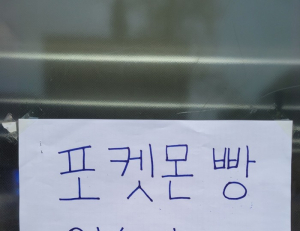 포켓몬 빵